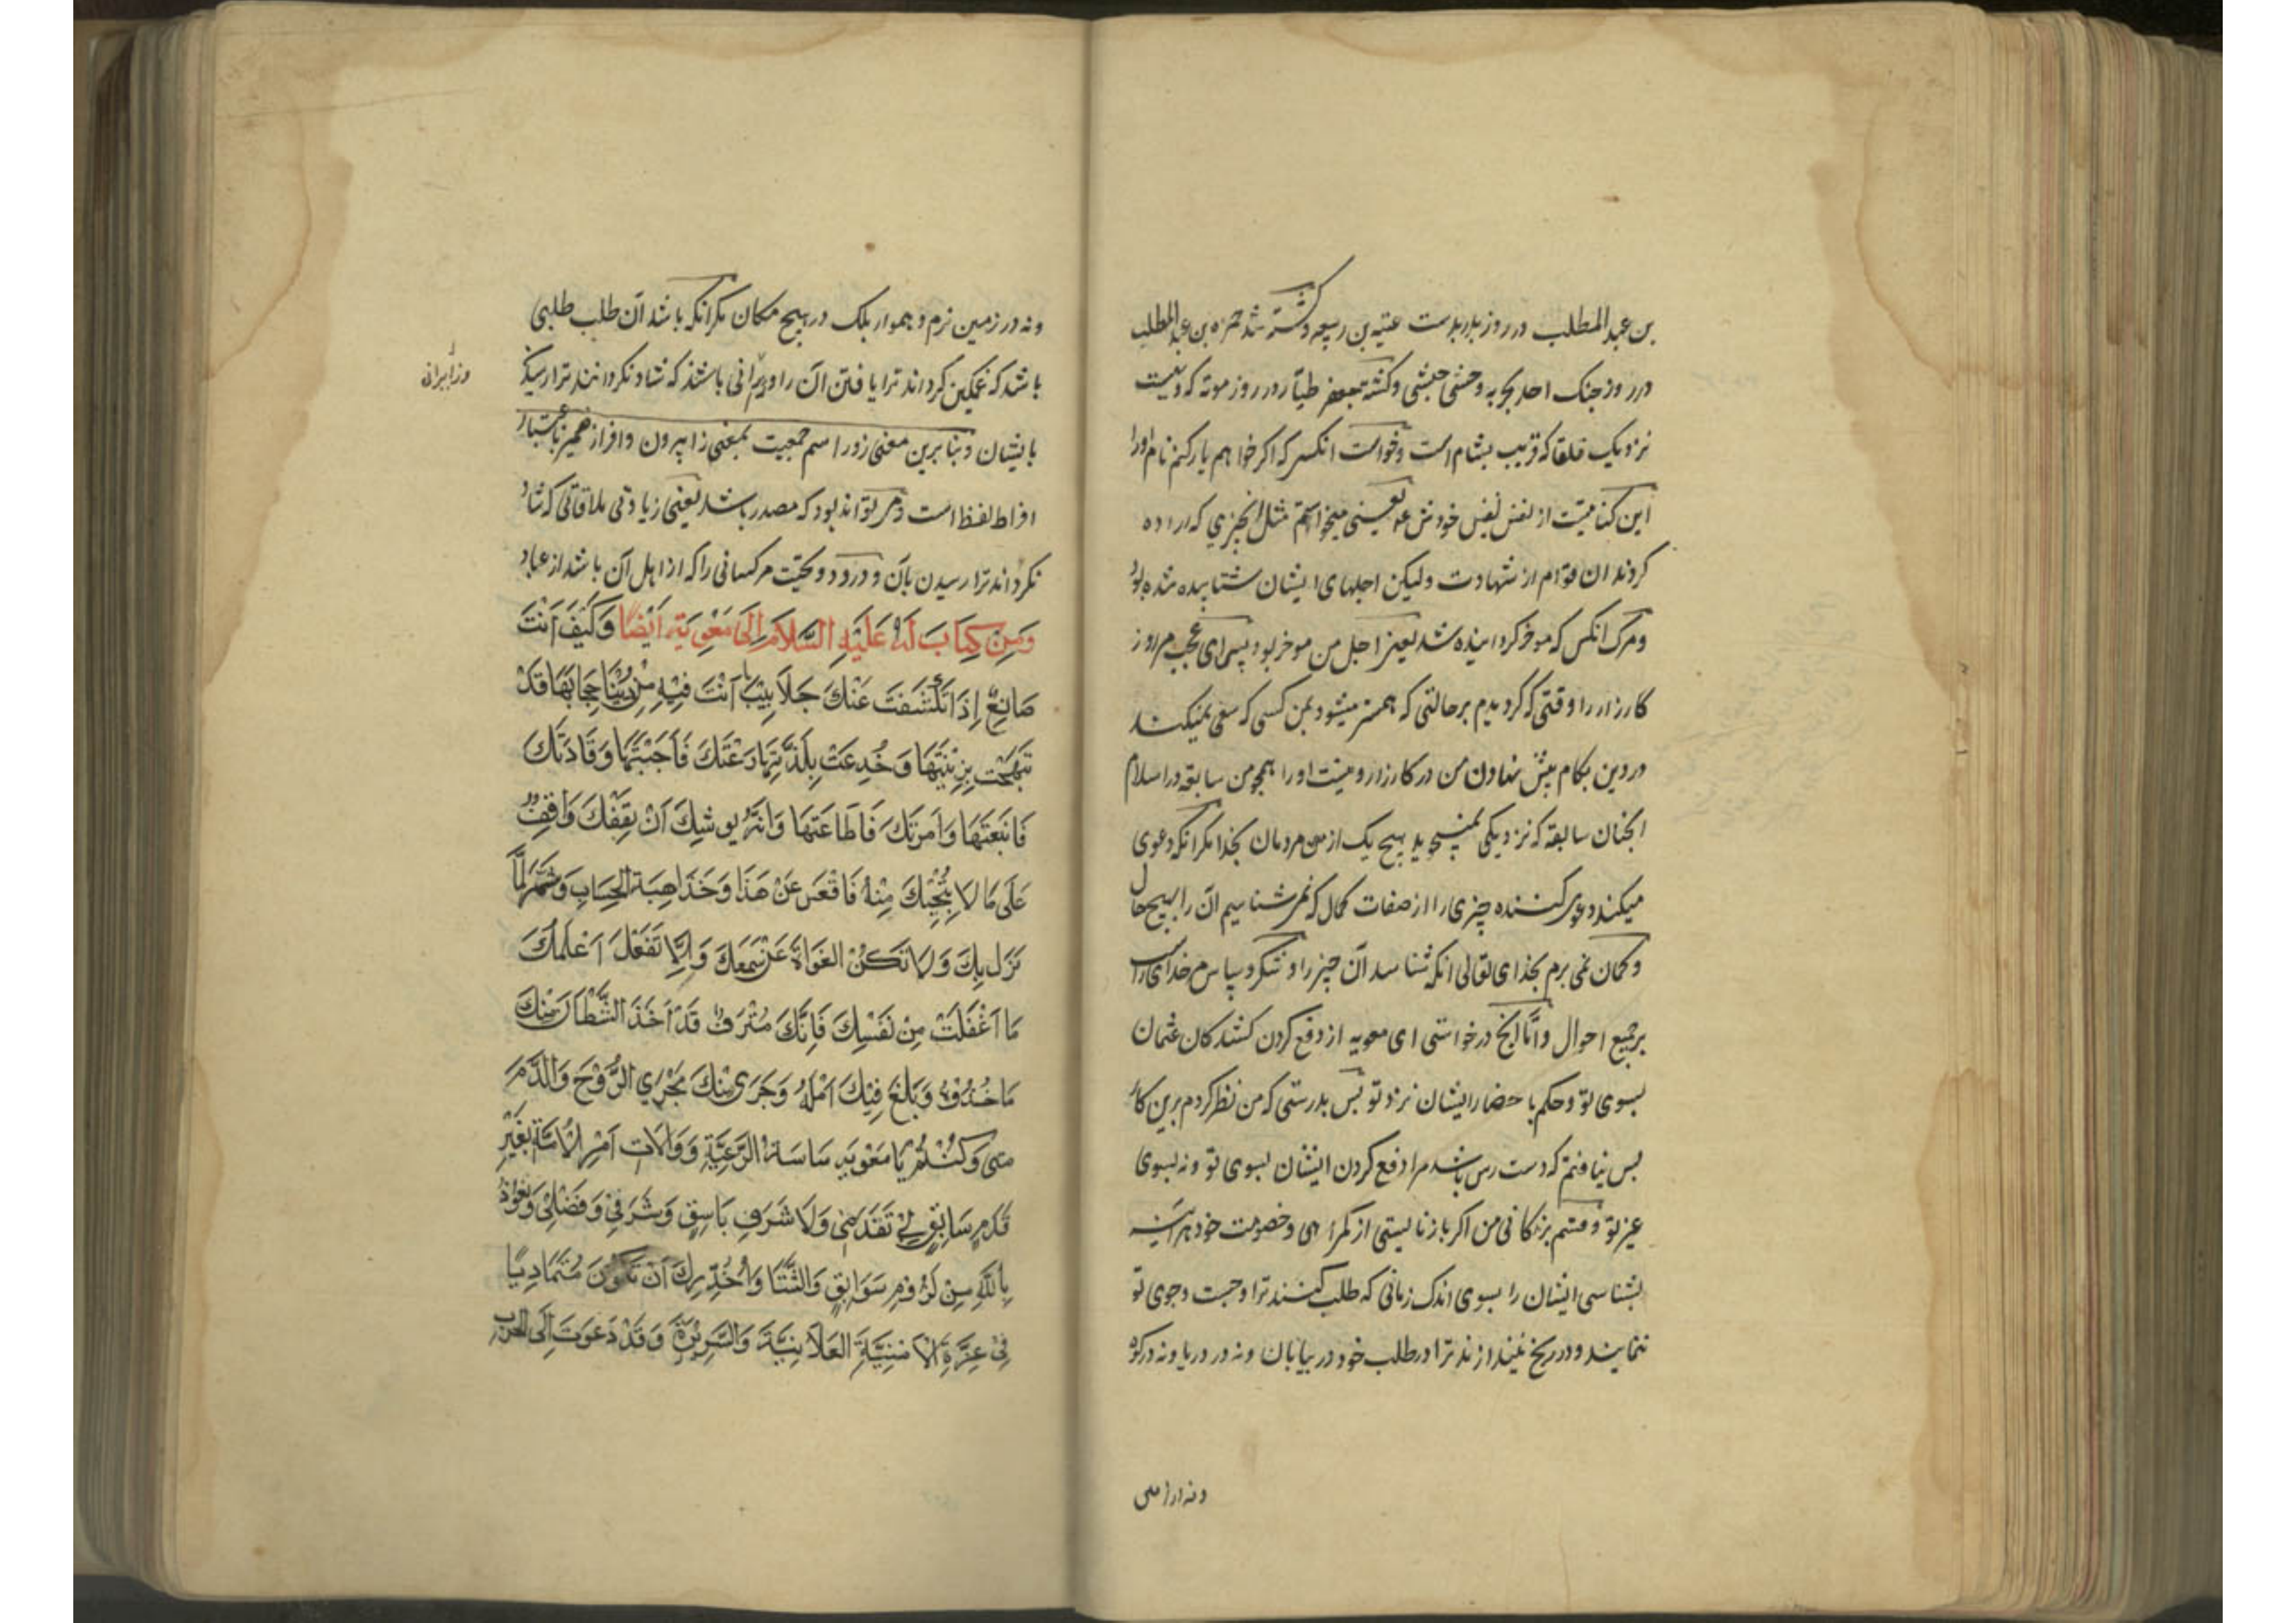 بن عبد المطلب در روز بدر بدست عتبه بن ربیعه و کشته شد حمزه بن عبد المطلب
در روز جنک احد بحربه وحشی حبشی و کشته جعفر طیّار در روز موته که دهیست
نزدیک بلقا که قریب بشام است و خواست انکس که اکر خواهم یاد کنم نام او را
این کنایتست از نفس نفیس خودش ع یعنی میخواستم مثل انچیزی که اراده
کردند ان قوم از شهادت ولیکن اجلهای ایشان شتابیده شده بود
و مرک انکس که موخر کردانیده شد یعنی اجل من موخر بود پس ای عجب مر روز
کارزار را وقتی که کردیدم بر حالتی که همسر میشود بمن کسی که سعی نمیکند
در دین بکام پیش نهادن من در کارزار و نیست او را همچو من سابقه در اسلام
انچنان سابقه که نزدیکی نمیجوید هیچ یک از مردمان بخدا مکر انکه دعوی
میکند دعوی کننده چیزی را از صفات کمال که نمی شناسیم آن را بهیچ حال
و کمان نمی برم بخدای تعالی انکه شناسد آن چیز را و شکر و سپاس مر خدای راست
بر جمیع احوال و امّا انچ درخواستی ای معویه از دفع کردن کشندکان عثمان
بسوی تو و حکم باحضار ایشان نزد تو پس بدرستی که من نظر کردم برین کار
پس نیافتم که دست رس باشد مرا دفع کردن ایشان بسوی تو و نه بسوی
غیر تو و قسم بزندکانی من اکر باز نایستی از کمراهی و خصومت خود هراینه
بشناسی ایشان را بسوی اندک زمانی که طلب کنند ترا و جست و جوی تو
نمایند و در رنج نیندازند ترا در طلب خود در بیابان و نه در دریا و نه در کوه
و نه در زمین
و نه در زمین نرم و هموار بلک در هیچ مکان مکر انکه باشد آن طلب طلبی
باشد که غمکین کرداند ترا یافتن آن را و زایرانی باشند که شاد نکردانند ترا رسیدن
و زایرانی
بایشان و بنا برین معنی زور اسم جمعیت بمعنی زایرون و افراز ضمیر باعتبار
افراط لفظ است و می تواند بود که مصدر باشد یعنی زیادتی ملاقاتی که شاد
نکرداند ترا رسیدن بآن و درود و تحیّت مر کسانی را که از اهل آن باشد از عباد
وَمِنْ كِتَابٍ لَهُ عَلَيْهِ السَّلَامُ إِلَى مَعْوِيَةَ أَيْضًا وَكَيْفَ اَنْتَ
صَانِعٌ إِذَا تَكَشَّفَتْ عَنْكَ جَلَابِيْبُ مَا اَنْتَ فِيْهِ مِنْ دُنْيَا حِجَابُهَا قَدْ
تَبَهَّجَتْ بِزِيْنَتِهَا وَخُدِعَتْ بِلَذَّتِهَا دَعَتْكَ فَاَجَبْتَهَا وَقَادَتْكَ
فَاتَّبَعْتَهَا وَاَمَرَتْكَ فَاَطَاعَتَهَا وَانَّهُ يُوشِكُ اَنْ يَقِفَكَ وَاقِفٌ
عَلَى مَا لَا يُنْجِيْكَ مِنْهُ فَاقْعَسْ عَنْ هَذَا وَخُذْ اُهْبَةَ الْحِسَابِ وَشَمِّرْ لِمَا
نَزَلَ بِكَ وَلَا تَكُنْ الغَوَاةَ عَنْ سَمْعِكَ وَاِلَّا تَفْعَلْ اُعْلِمْكَ
مَا اَغْفَلَتْ مِنْ نَفْسِكَ فَاِنَّكَ مُتْرَفٌ قَدْ اَخَذَ الشَّيْطَانُ مِنْكَ
مَاخُذَهُ وَبَلَغَ فِيْكَ اَمَلَهُ وَجَرَى مِنْكَ مَجْرَى الرُّوْحِ وَالدَّمِ
مَتى وَكُنْتُمْ يَا مَعْوِيَه سَاسَةَ الرَّعِيَّةِ وَوَلَاتَ اَمْرِ الْاُمَّةِ بِغَيْرِ
قَدَمٍ سَابِقٍ لِي تَقَدَّمَنِي وَلَا شَرَفٍ بَاسِقٍ وَشَرَفِيْ وَفَضْلِيْ وَنَعُوْذُ
بِاللَّهِ مِنْ لَزُوْمِ سَوَابِقِ وَالشَّقَا وَاُحَذِّرُكَ اَنْ تَكُوْنَ مُتَمَادِيًا
فِيْ غِرَّةِ الْاُمْنِيَّةِ العَلَانِيَّةَ وَالسَّرِيْرَةِ وَقَدْ دَعَوْتَ اِلَى الْحَرْبِ